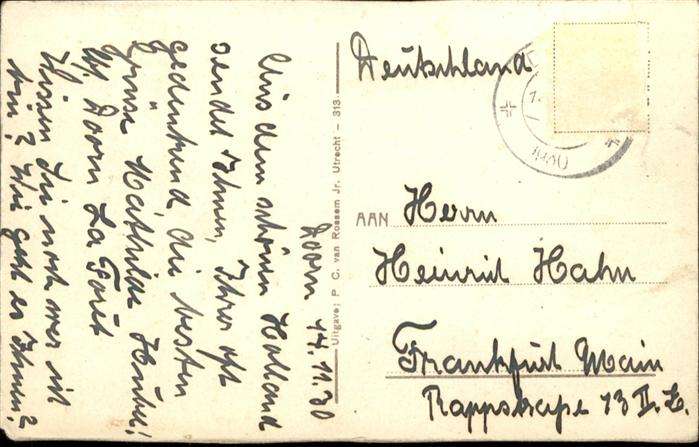 Doorn 14.11.30
Aus dem schönen Holland
sendet Ihnen, Ihrer oft
gedenkend die besten
Grüsse Mathilde Hübel!
Up. Doorn La Forêt
Wissen Sie noch wer ich
bin? Wie geht es Ihnen?
Uitgave: P. C. van Rossem Jr. Utrecht – 313.
Deutschland
AAN Herrn
Heinrich Hahn
Frankfurt Main
Rappstrasse 13 II. L.